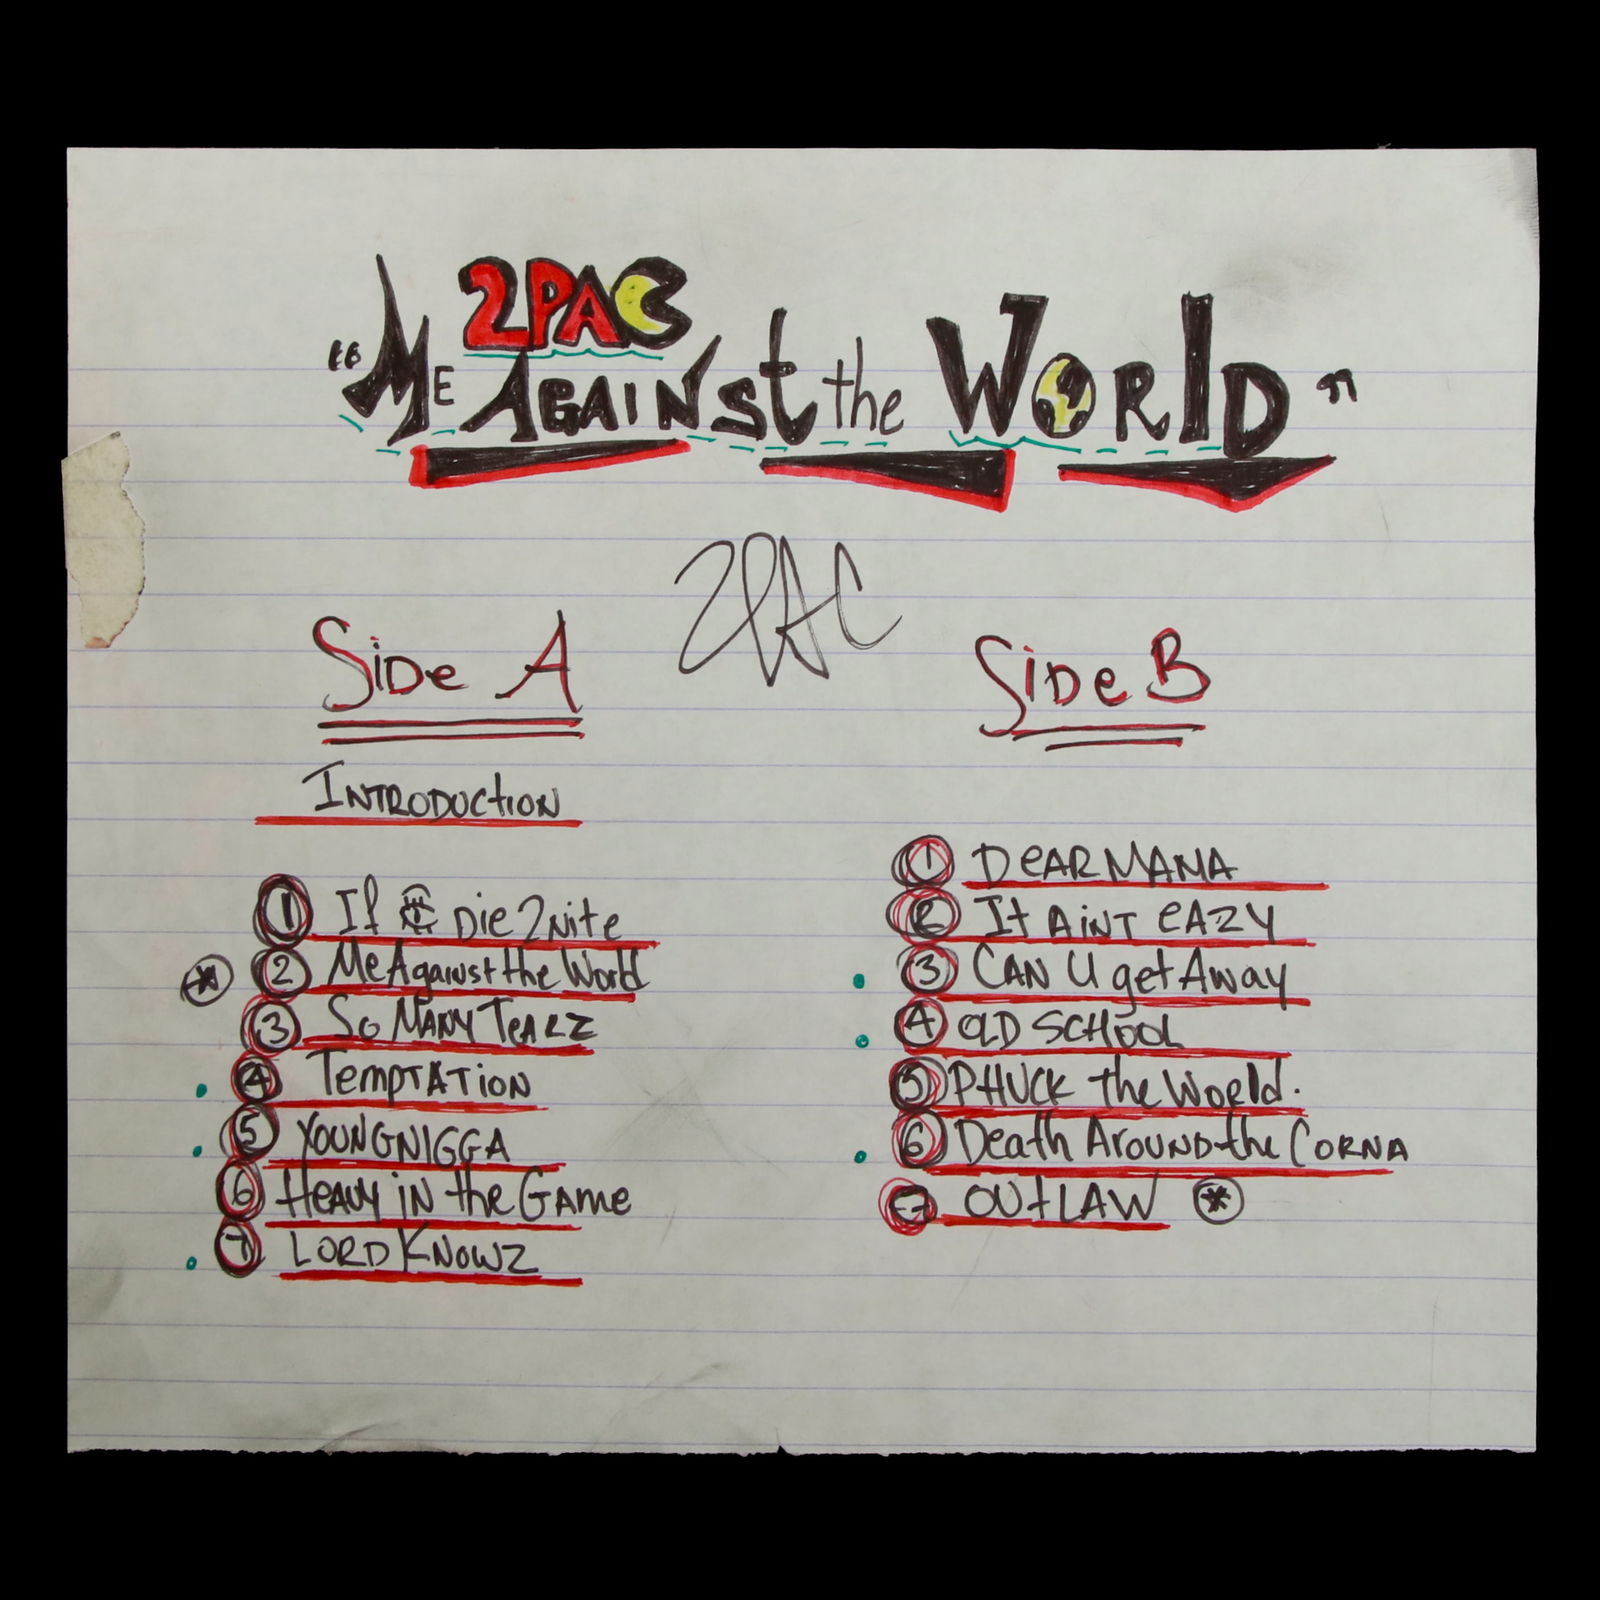 2PAC
"Me Against the World"
2PAC
Side A
Introduction
1 If 👁 Die 2Nite
2 Me Against the World
3 So Many Tearz
4 Temptation
5 YOUNGNIGGA
6 Heavy in the Game
7 LORD KNOWZ
Side B
1 DEAR MAMA
2 It AiNT eAZY
3 CAN U get Away
4 OLD SCHOOL
5 PHUCK the World.
6 Death Around the Corna
7 OUtLAW